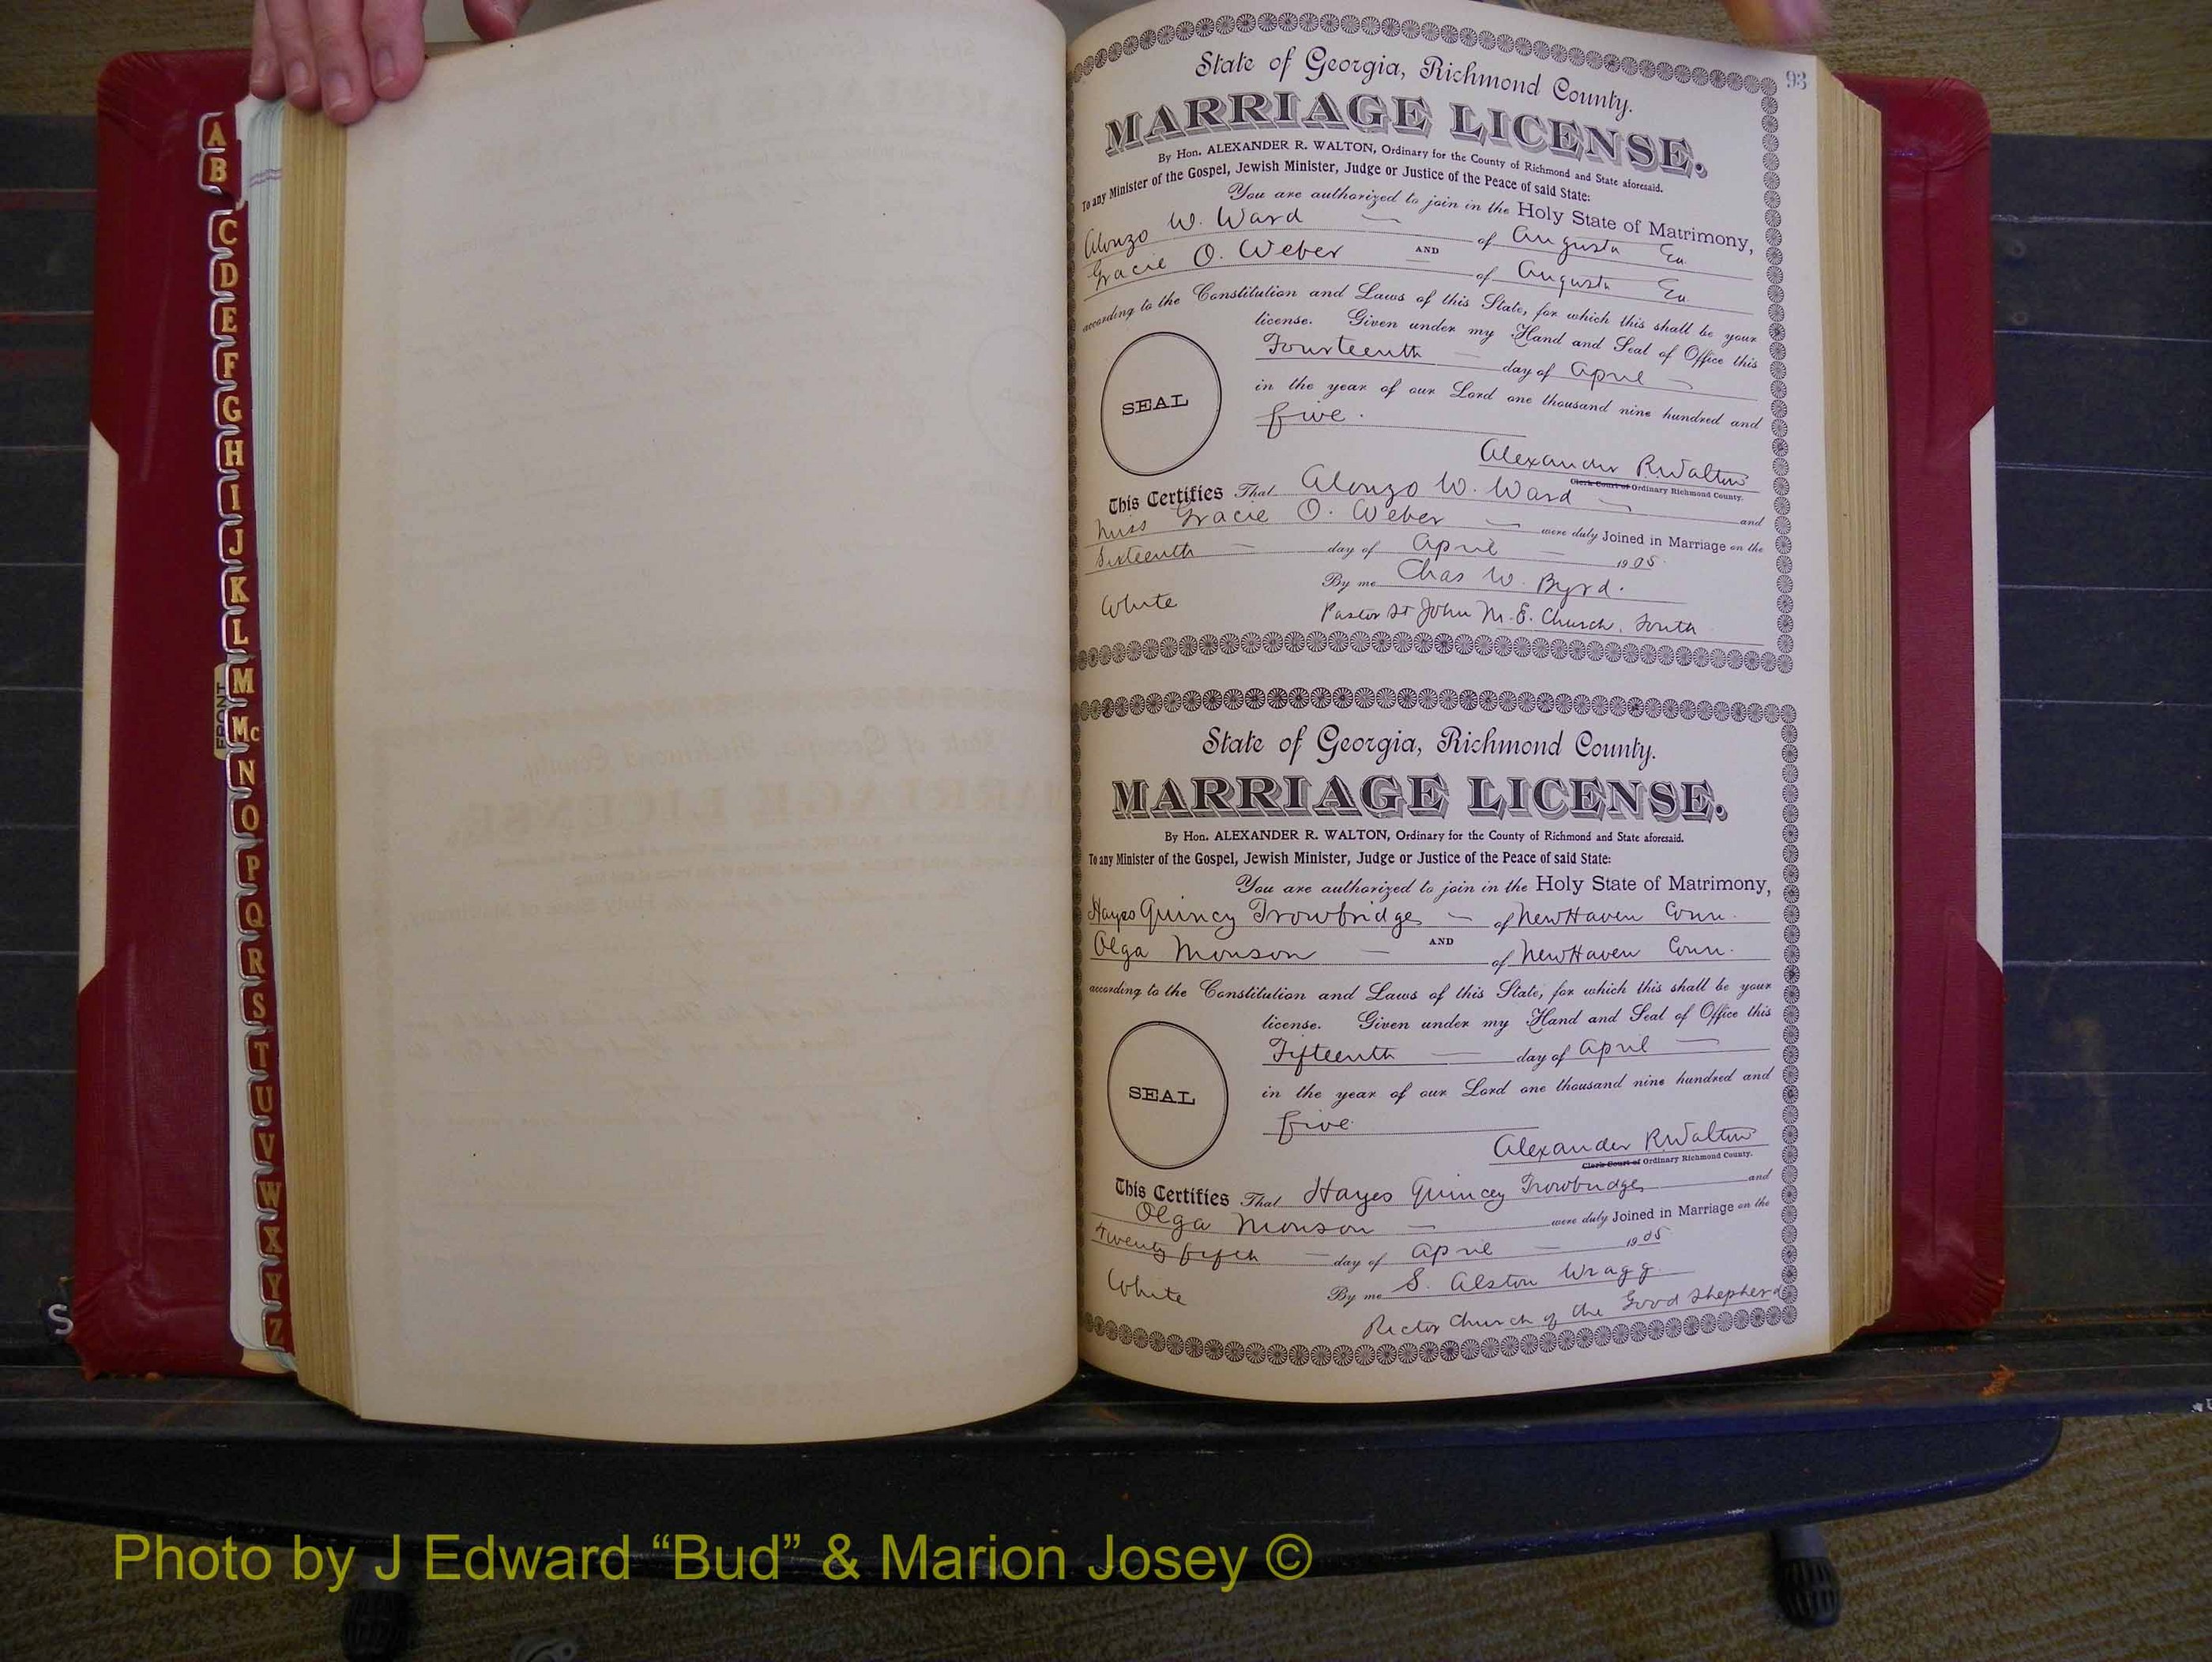 A
B
C
D
E
F
G
H
I
J
K
L
M
Mc
N
O
P
Q
R
S
T
U
V
W
X
Y
Z
FRONT
93
State of Georgia, Richmond County.
MARRIAGE LICENSE.
By Hon. ALEXANDER R. WALTON, Ordinary for the County of Richmond and State aforesaid.
To any Minister of the Gospel, Jewish Minister, Judge or Justice of the Peace of said State:
You are authorized to join in the Holy State of Matrimony,
Alonzo W. Ward of Augusta Ga
AND
Gracie O. Weber of Augusta Ga
according to the Constitution and Laws of this State, for which this shall be your
license. Given under my Hand and Seal of Office this
Fourteenth day of April
in the year of our Lord one thousand nine hundred and
five.
SEAL
Alexander R. Walton
Clerk Court of Ordinary Richmond County.
This Certifies That Alonzo W. Ward and
Miss Gracie O. Weber were duly Joined in Marriage on the
Sixteenth day of April 1905.
By me Chas W. Byrd.
White Pastor St John M.E. Church, South
State of Georgia, Richmond County.
MARRIAGE LICENSE.
By Hon. ALEXANDER R. WALTON, Ordinary for the County of Richmond and State aforesaid.
To any Minister of the Gospel, Jewish Minister, Judge or Justice of the Peace of said State:
You are authorized to join in the Holy State of Matrimony,
Hayes Quincy Trowbridge of New Haven Conn.
AND
Olga Monson of New Haven Conn.
according to the Constitution and Laws of this State, for which this shall be your
license. Given under my Hand and Seal of Office this
Fifteenth day of April
in the year of our Lord one thousand nine hundred and
five
SEAL
Alexander R. Walton
Clerk Court of Ordinary Richmond County.
This Certifies That Hayes Quincey Trowbridge and
Olga Monson were duly Joined in Marriage on the
Twenty fifth day of April 1905
By me S. Alston Wragg
White Rector Church of the Good Shepherd
Photo by J Edward “Bud” & Marion Josey ©